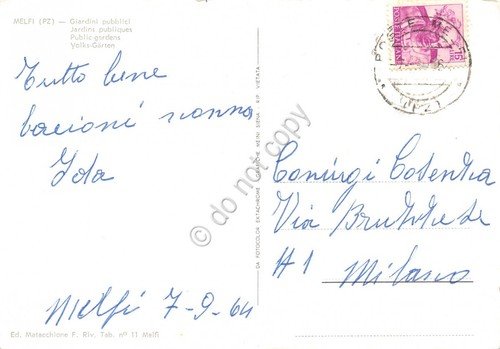 MELFI (PZ) — Giardini pubblici
Jardins publiques
Public-gardens
Volks-Gärten
Tutto bene
bacioni nonna
Iola
Melfi 7-9-64
Ed. Matacchione F. Riv. Tab. n° 11 Melfi
DA FOTOCOLOR EKTACHROME RIP. VIETATA
POSTE MELFI
(PZ)
Coniugi Cosenka
Via
H1 Milano
© do not copy